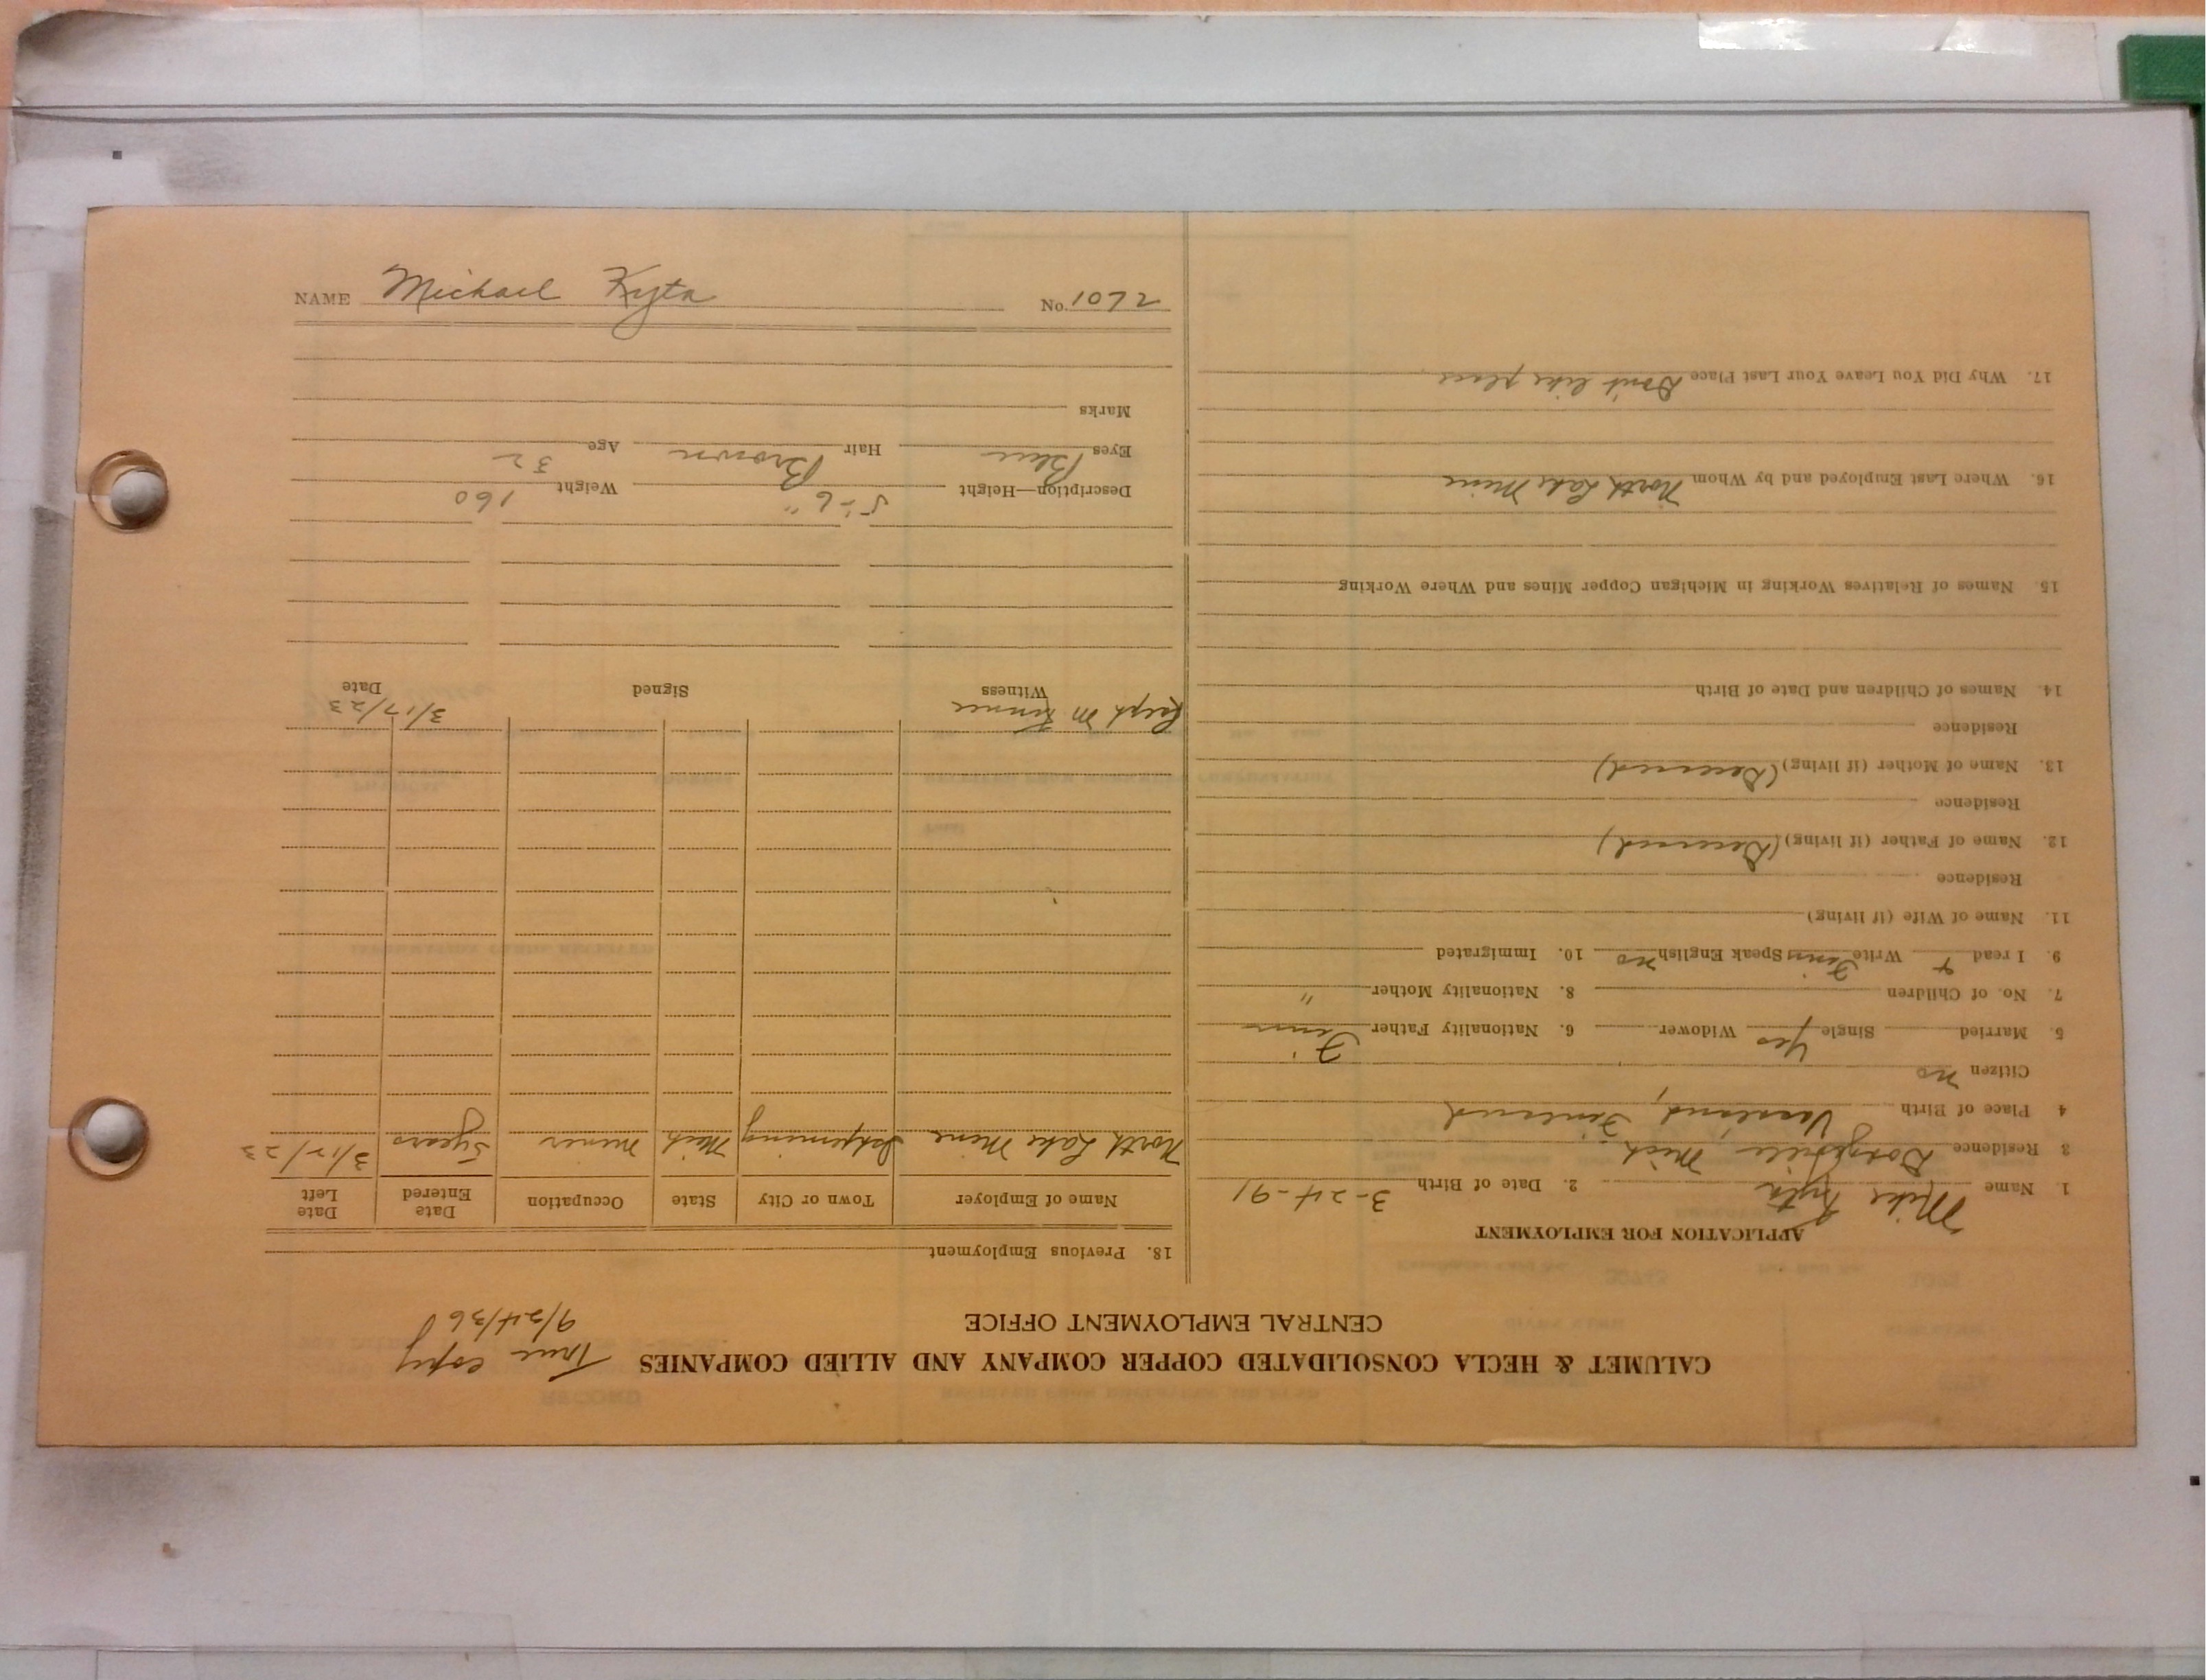 CALUMET & HECLA CONSOLIDATED COPPER COMPANY AND ALLIED COMPANIES
True copy
9/24/36
CENTRAL EMPLOYMENT OFFICE
APPLICATION FOR EMPLOYMENT
1. Name Mike Kyta 2. Date of Birth 3-24-91
3 Residence Mich.
4 Place of Birth Finland
Citizen no
5. Married Single Yes Widower 6. Nationality Father Finn
7. No. of Children 8. Nationality Mother "
9. I read + Write Finn Speak English no 10. Immigrated
11. Name of Wife (if living)
Residence
12. Name of Father (if living) (Deceased)
Residence
13. Name of Mother (if living) (Deceased)
Residence
14. Names of Children and Date of Birth
15. Names of Relatives Working in Michigan Copper Mines and Where Working
16. Where Last Employed and by Whom North Lake Mine
17. Why Did You Leave Your Last Place Don't like place
18. Previous Employment
Name of Employer Town or City State Occupation Date Entered Date Left
North Lake Mine Ishpeming Mich miner 5 years 3/12/23
Ralph M 3/17/23
Witness Signed Date
Description—Height 5'-6" Weight 160
Eyes Blue Hair Brown Age 32
Marks
NAME Michael Kyta No. 1072